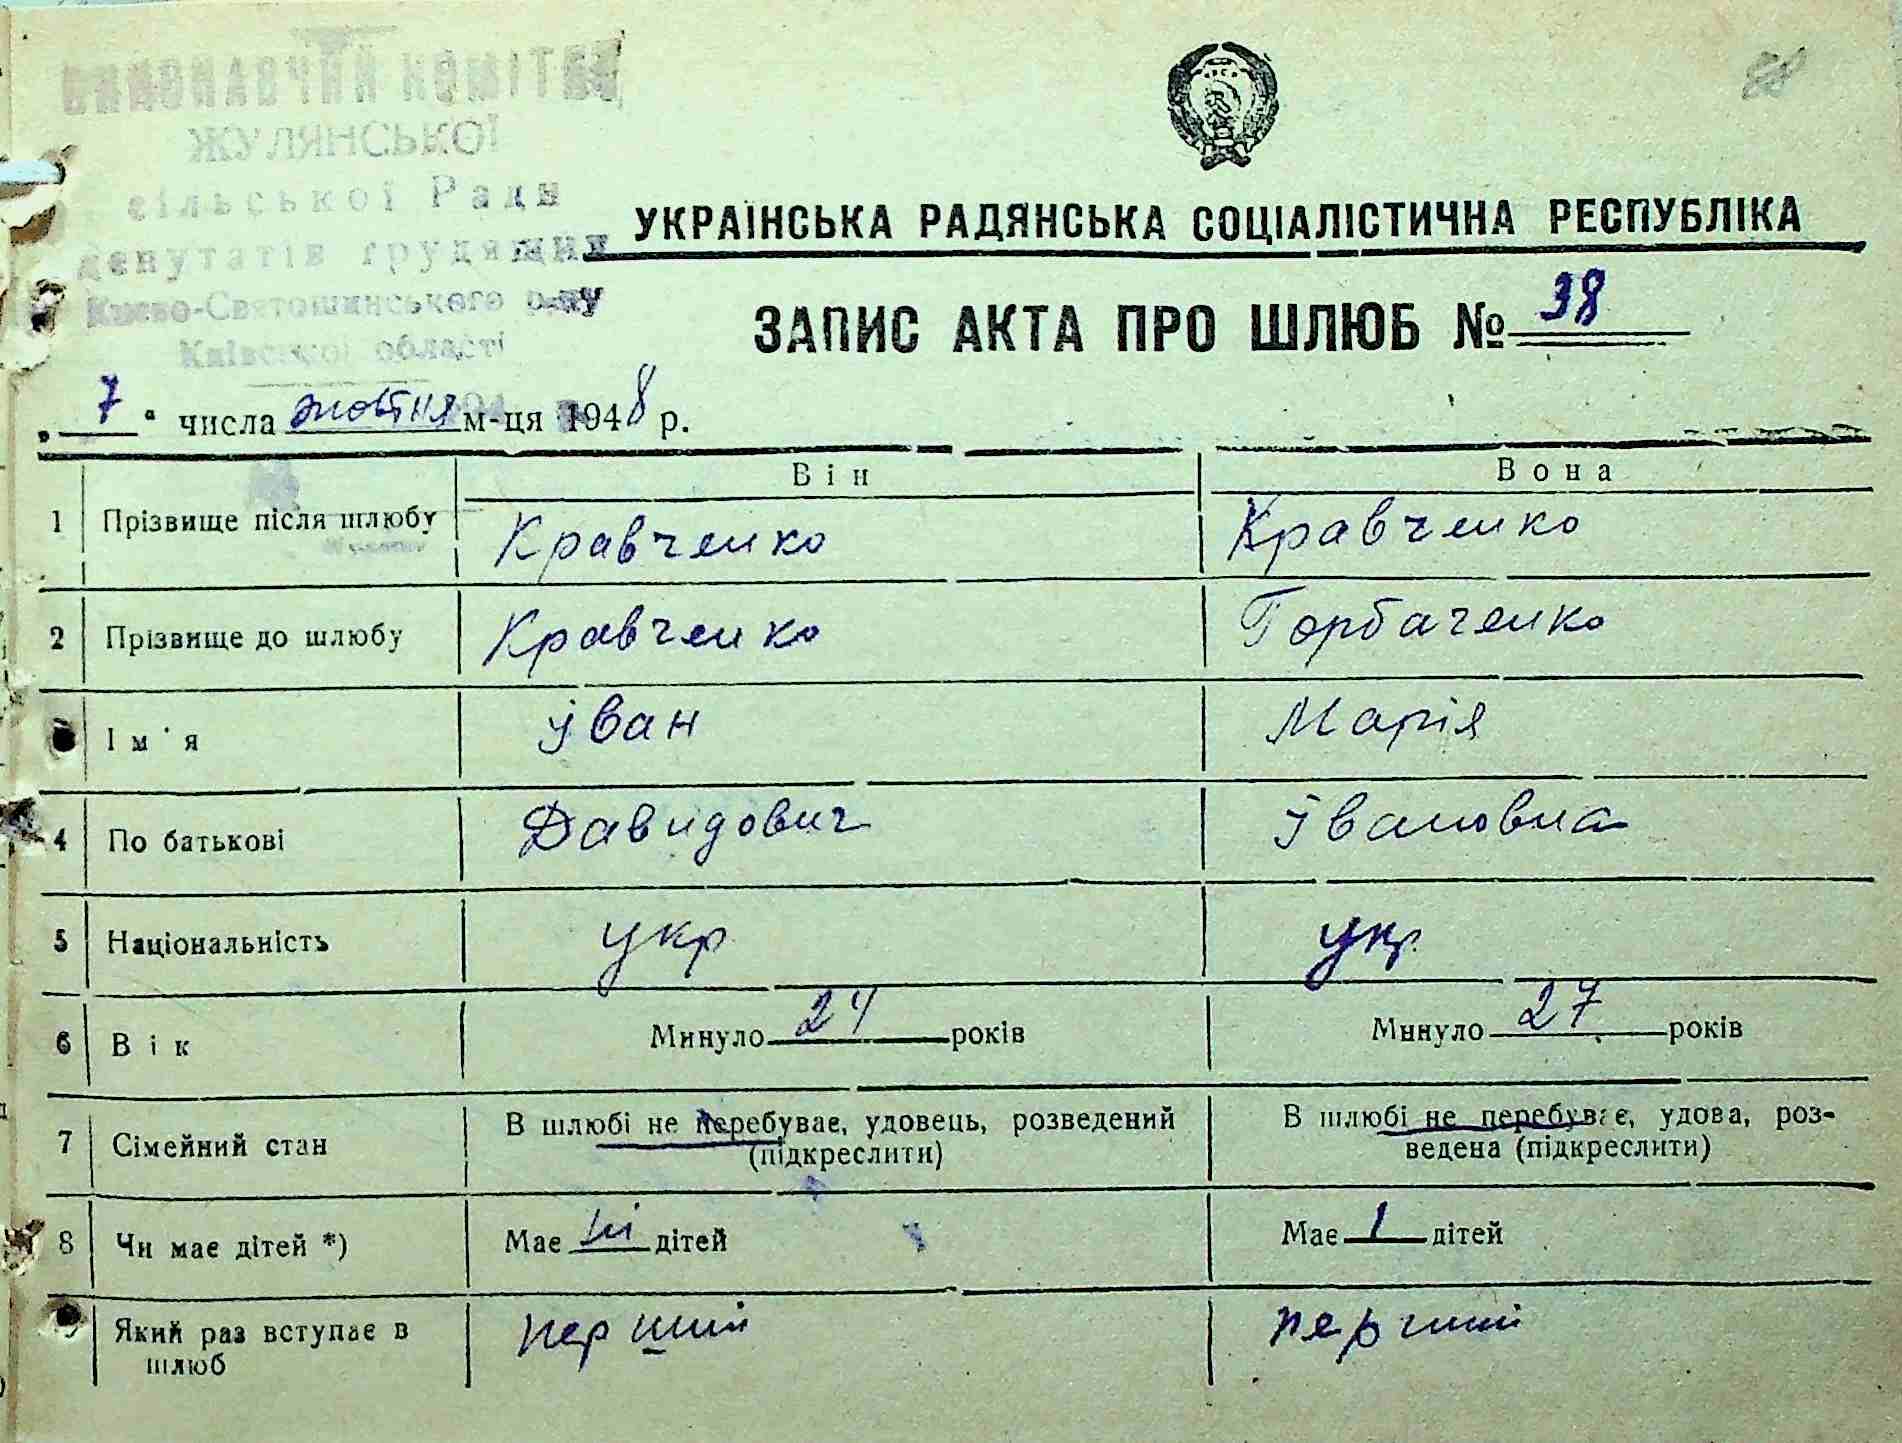 88
ВИКОНАВЧИЙ КОМІТЕТ
ЖУЛЯНСЬКОЇ
сільської Ради
депутатів трудящих
Києво-Святошинського р-ну
Київської області
УКРАЇНСЬКА РАДЯНСЬКА СОЦІАЛІСТИЧНА РЕСПУБЛІКА
ЗАПИС АКТА ПРО ШЛЮБ № 38
„ 7 “ числа жовтня м-ця 1948 р.
Він Вона
1 Прізвище після шлюбу Кравченко Кравченко
2 Прізвище до шлюбу Кравченко Горбаченко
Ім'я Іван Марія
4 По батькові Давидович Івановна
5 Національність укр укр
6 Вік Минуло 24 років Минуло 27 років
7 Сімейний стан В шлюбі не перебуває, удовець, розведений (підкреслити) В шлюбі не перебуває, удова, роз-
ведена (підкреслити)
8 Чи має дітей *) Має ні дітей Має 1 дітей
Який раз вступає в перший перший
шлюб